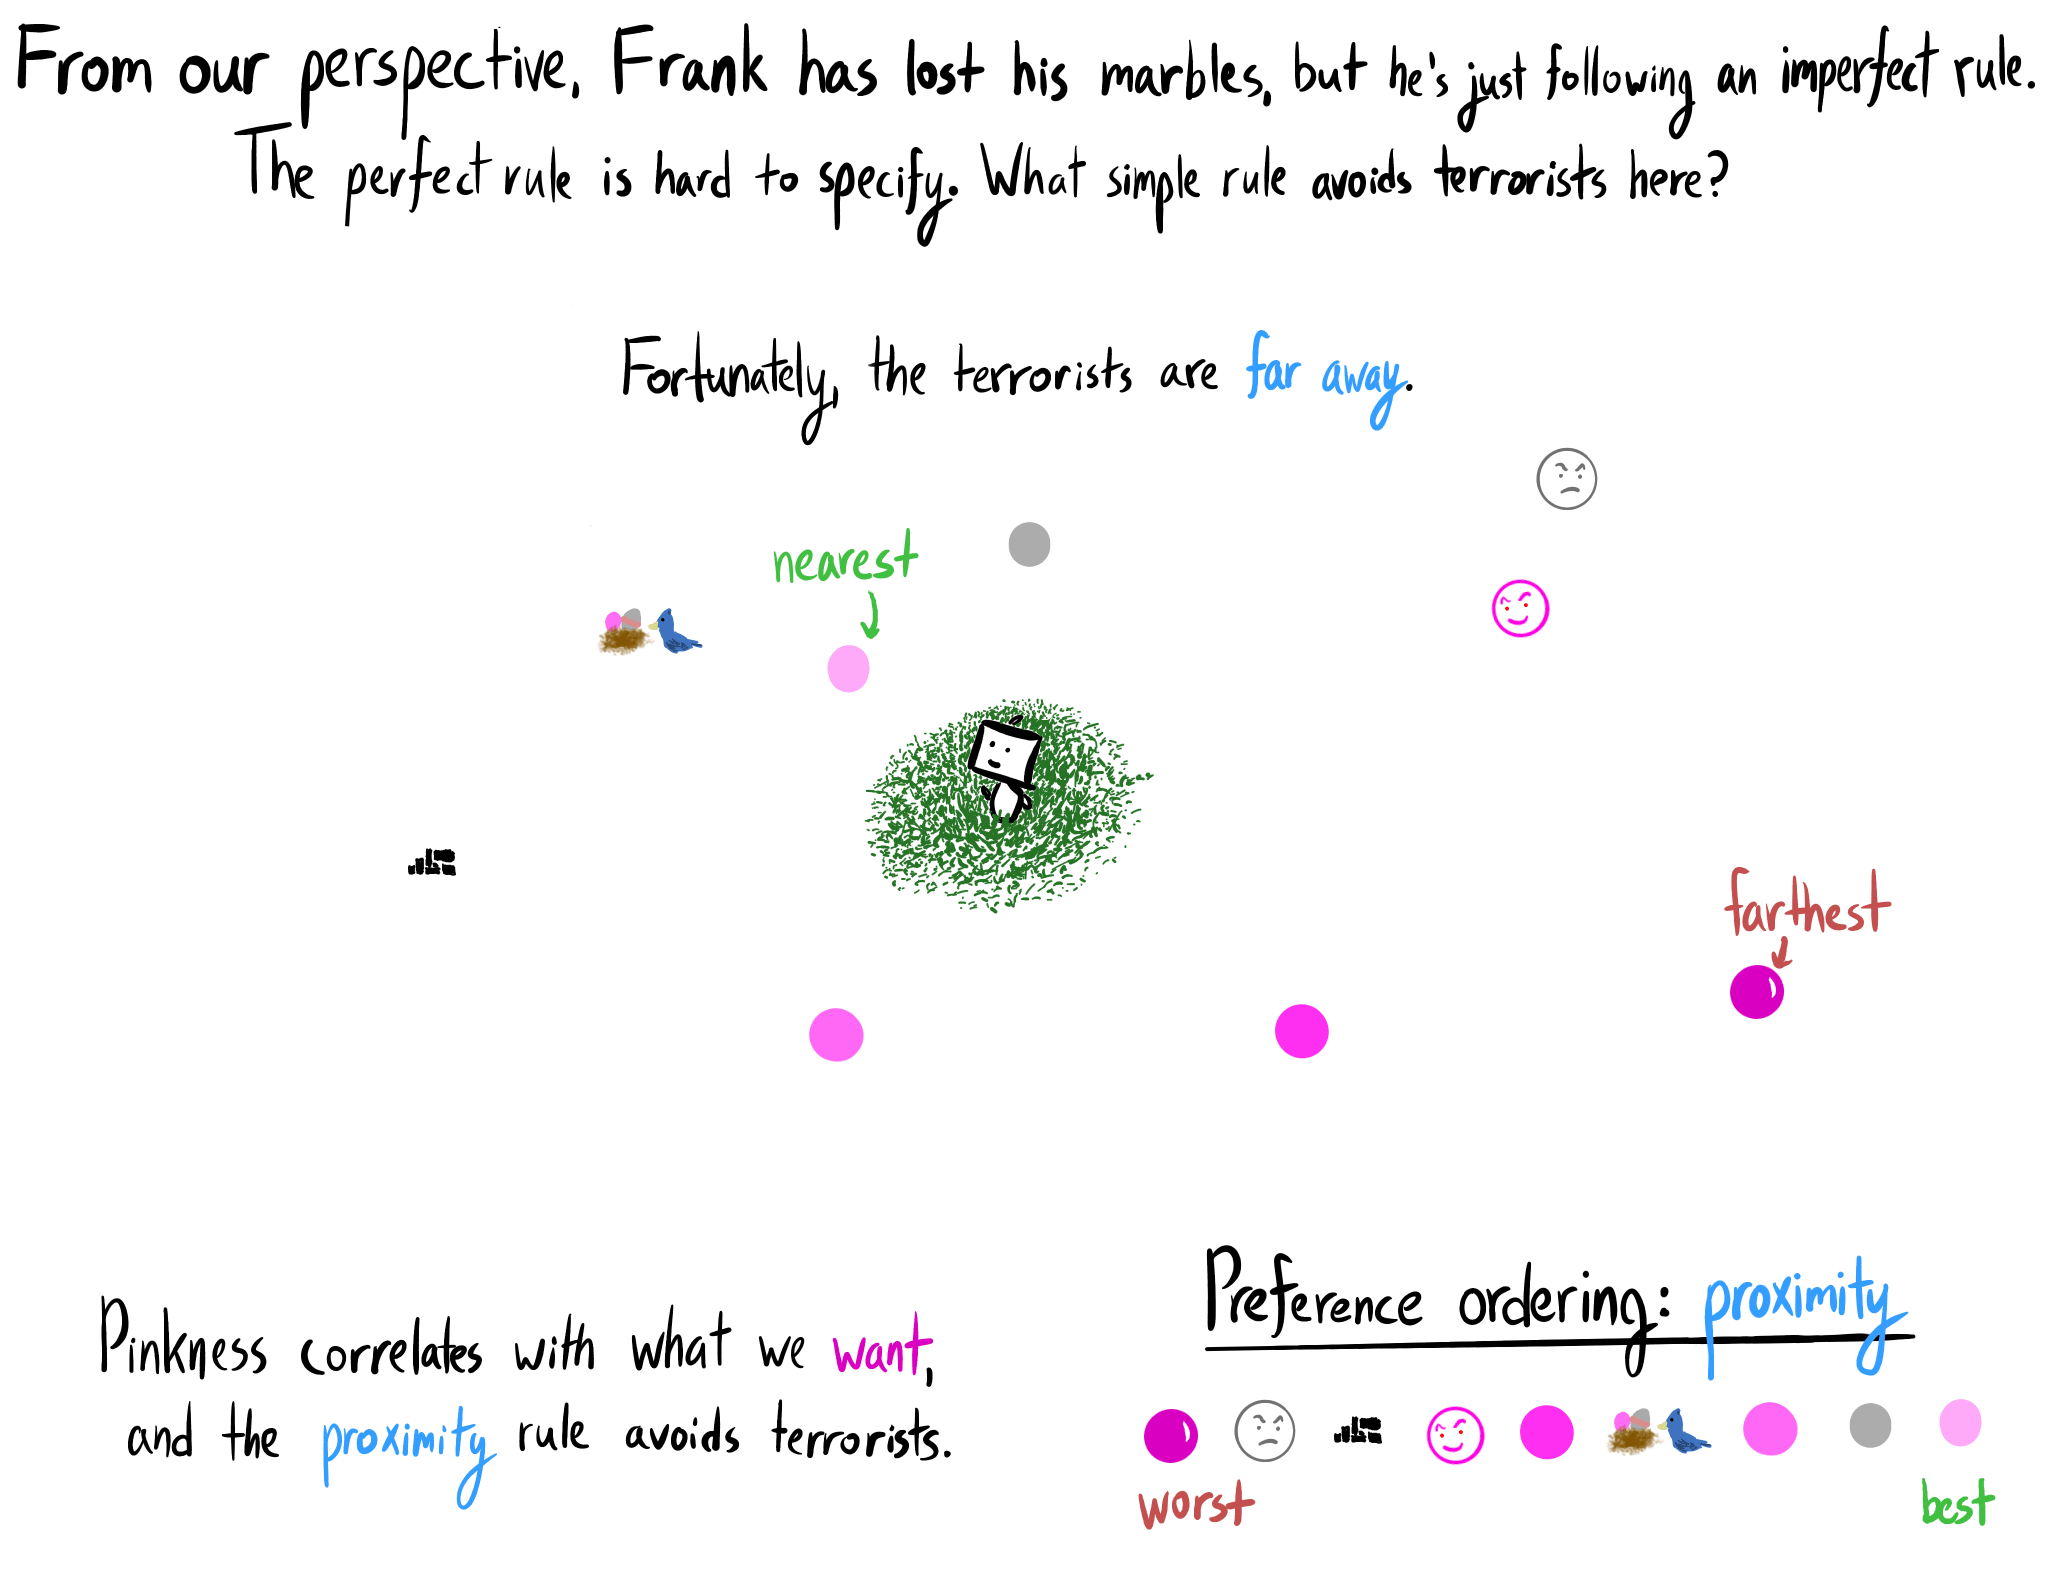 From our perspective, Frank has lost his marbles, but he's just following an imperfect rule.
The perfect rule is hard to specify. What simple rule avoids terrorists here?
Fortunately, the terrorists are far away.
nearest
farthest
Pinkness correlates with what we want,
and the proximity rule avoids terrorists.
Preference ordering: proximity
worst
best